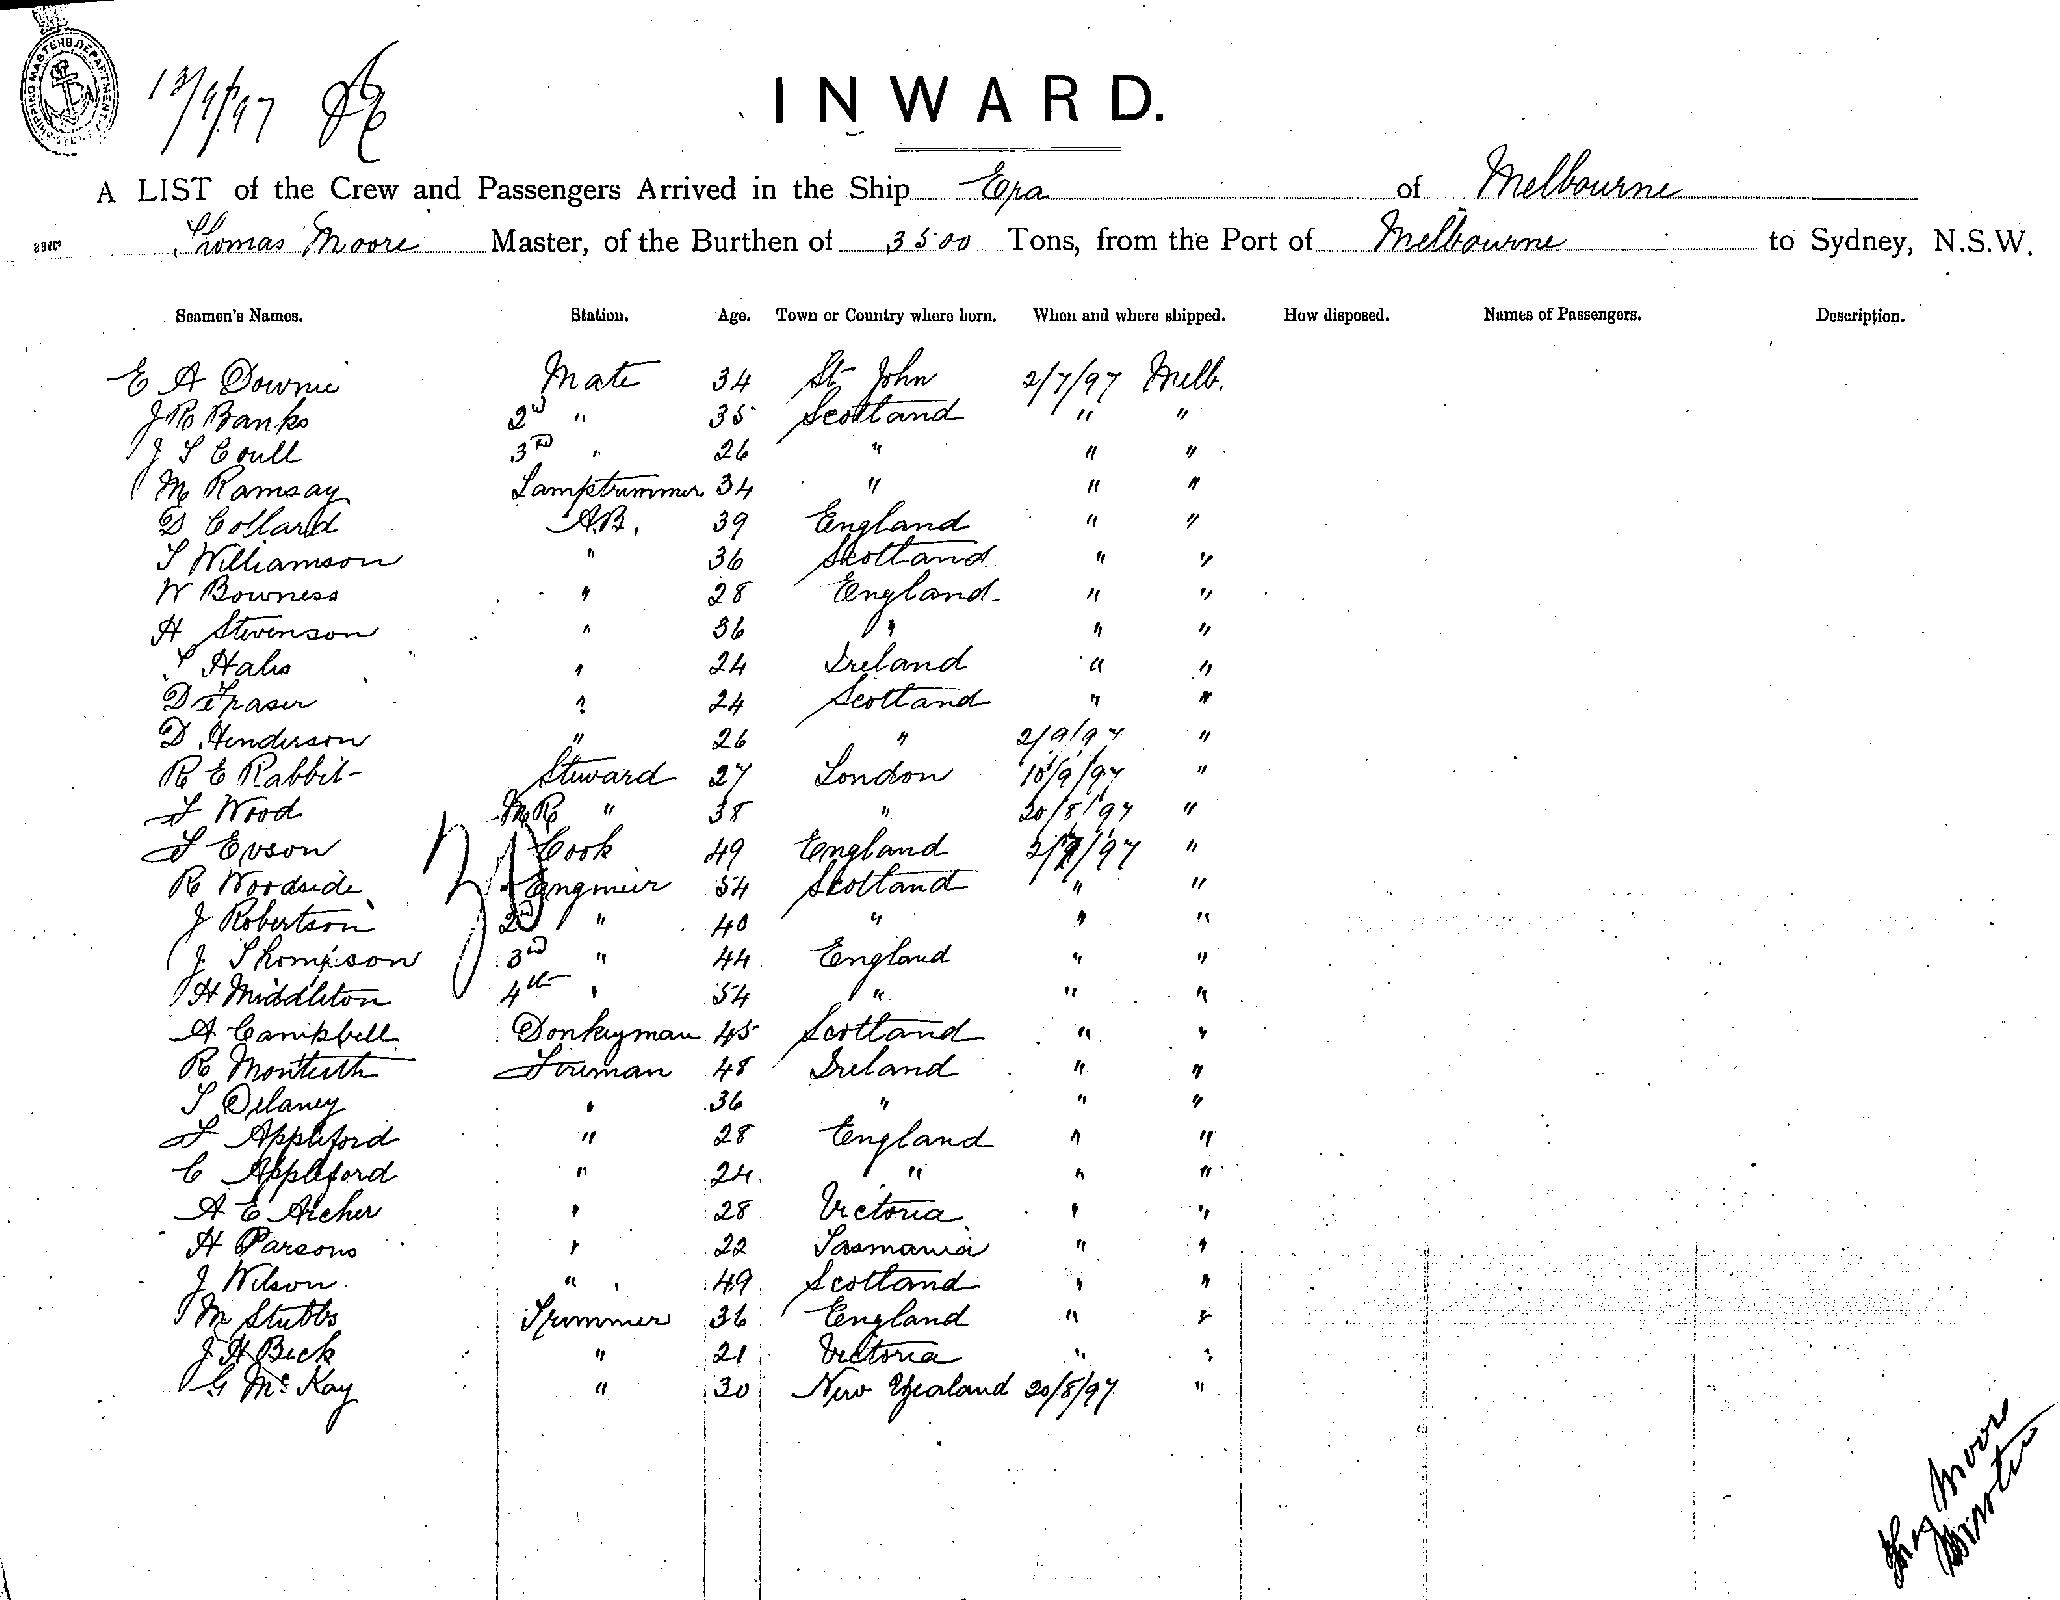 SHIPPING MASTER'S DEPARTMENT
13/9/97
INWARD.
A LIST of the Crew and Passengers Arrived in the Ship Era of Melbourne
Thomas Moore Master, of the Burthen of 3500 Tons, from the Port of Melbourne to Sydney, N.S.W.
Seamen's Names. Station. Age. Town or Country where born. When and where shipped. How disposed. Names of Passengers. Description.
E A Downie Mate 34 St John 2/7/97 Melb.
J R Banks 2d " 35 Scotland " "
J S Coull 3rd " 26 " " "
M Ramsay Lamptrimmer 34 " " "
D Collard A.B. 39 England " "
T Williamson " 36 Scotland " "
W Bowness " 28 England " "
H Stevenson " 36 " " "
T Hales " 24 Ireland " "
D Fraser " 24 Scotland " "
D. Henderson " 26 " 2/9/97 "
R E Rabbit Steward 27 London 10/9/97 "
F Wood M.R " 38 " 20/8/97 "
F Evson Cook 49 England 2/7/97 "
R Woodside Engineer 54 Scotland " "
J Robertson 2d " 40 " " "
J Thompson 3rd " 44 England " "
H Middleton 4th " 54 " " "
A Campbell Donkeyman 45 Scotland " "
R Monteith Fireman 48 Ireland " "
T Delaney " 36 " " "
F Appleford " 28 England " "
C Appleford " 24 " " "
A E Archer " 28 Victoria " "
H Parsons " 22 Tasmania " "
J Wilson " 49 Scotland " "
M Stubbs Trimmer 36 England " "
J H Beck " 21 Victoria " "
G McKay " 30 New Zealand 20/8/97 "
Thos Moore
Master